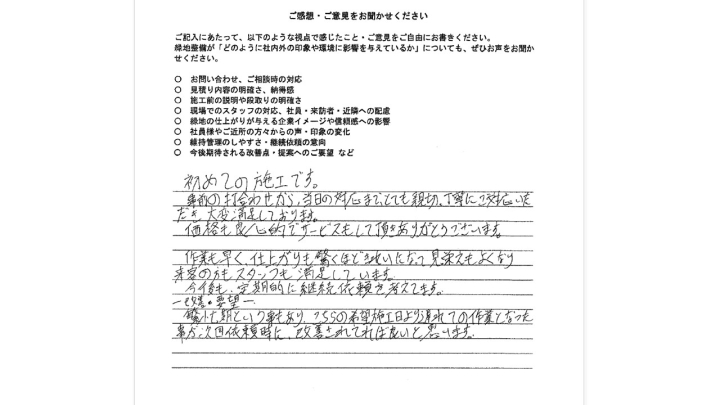 ご感想・ご意見をお聞かせください
ご記入にあたって、以下のような視点で感じたこと・ご意見をご自由にお書きください。
緑地整備が「どのように社内外の印象や環境に影響を与えているか」についても、ぜひお声をお聞か
せください。
○ お問い合わせ、ご相談時の対応
○ 見積り内容の明確さ、納得感
○ 施工前の説明や段取りの明確さ
○ 現場でのスタッフの対応、社員・来訪者・近隣への配慮
○ 緑地の仕上がりが与える企業イメージや信頼感への影響
○ 社員様やご近所の方々からの声・印象の変化
○ 維持管理のしやすさ・継続依頼の意向
○ 今後期待される改善点・提案へのご要望 など
初めての施工です。
事前の打合わせから、当日の対応までとても親切、丁寧にご対応いた
だき、大変満足しております。
価格も良心的でサービスもして頂きありがとうございます。
作業も早く、仕上がりも驚くほどきれいになって見栄えもよくなり
来客の方もスタッフも満足しています。
今後も、定期的に継続依頼を考えてます。
ー改善・要望ー
繁忙期という事もあり、こちらの希望施工日より遅れての作業となった
事が次回依頼時に、改善されてれば良いと思います。